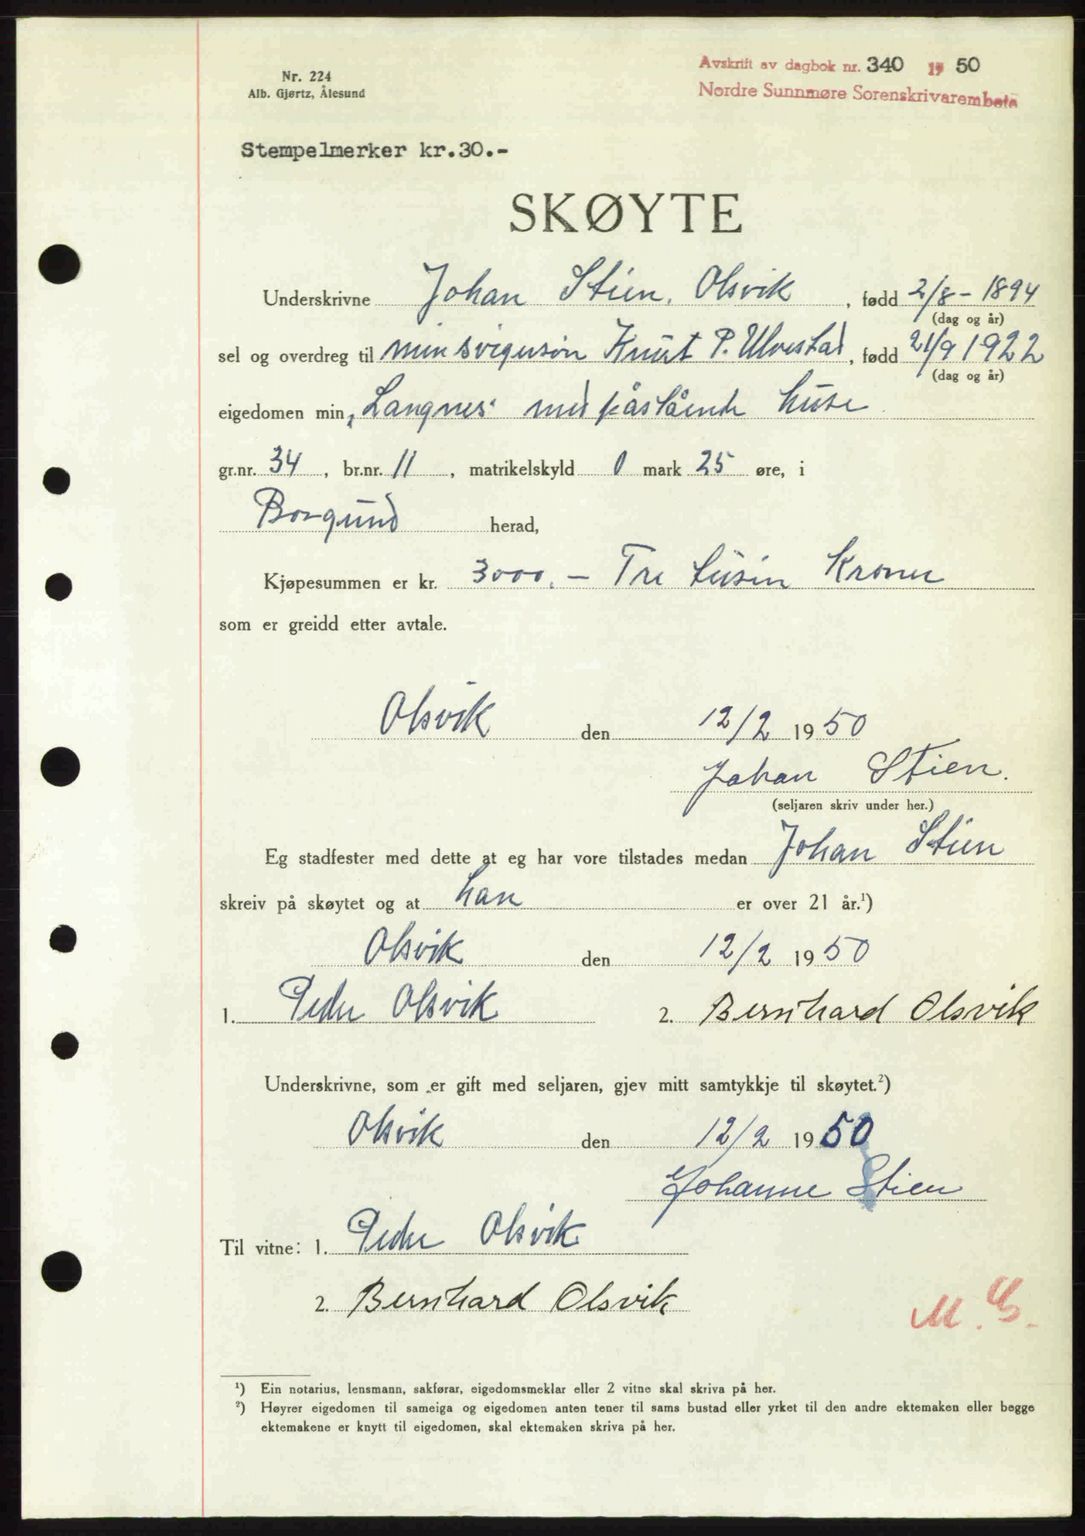 Nr. 224
Alb. Gjørtz, Ålesund
Avskrift av dagbok nr. 340 19 50
Nordre Sunnmøre Sorenskrivarembete
Stempelmerker kr.30.-
SKØYTE
Underskrivne Johan Stien, Olsvik , fødd 2/8 - 1894
(dag og år)
sel og overdreg til min svigersøn Knut P. Ulvestad, fødd 21/9 1922
(dag og år)
eigedomen min „Langnes" med påstående huse
gr.nr. 34 , br.nr. 11 , matrikelskyld 0 mark 25 øre, i
Borgund herad,
Kjøpesummen er kr. 3000. - Tre tusin Kroner
som er greidd etter avtale.
Olsvik den 12/2 1950
Johan Stien.
(seljaren skriv under her.)
Eg stadfester med dette at eg har vore tilstades medan Johan Stien
skreiv på skøytet og at han er over 21 år.¹)
Olsvik den 12/2 1950
1. Peder Olsvik 2. Bernhard Olsvik
Underskrivne, som er gift med seljaren, gjev mitt samtykkje til skøytet.²)
Olsvik den 12/2 1950
Johanne Stien
Til vitne: 1. Peder Olsvik
2. Bernhard Olsvik
M. G.
¹) Ein notarius, lensmann, sakførar, eigedomsmeklar eller 2 vitne skal skriva på her.
²) Høyrer eigedomen til sameiga og eigedomen anten tener til sams bustad eller yrket til den andre ektemaken eller begge
ektemakene er knytt til eigedomen, skal ektemaken skriva på her.